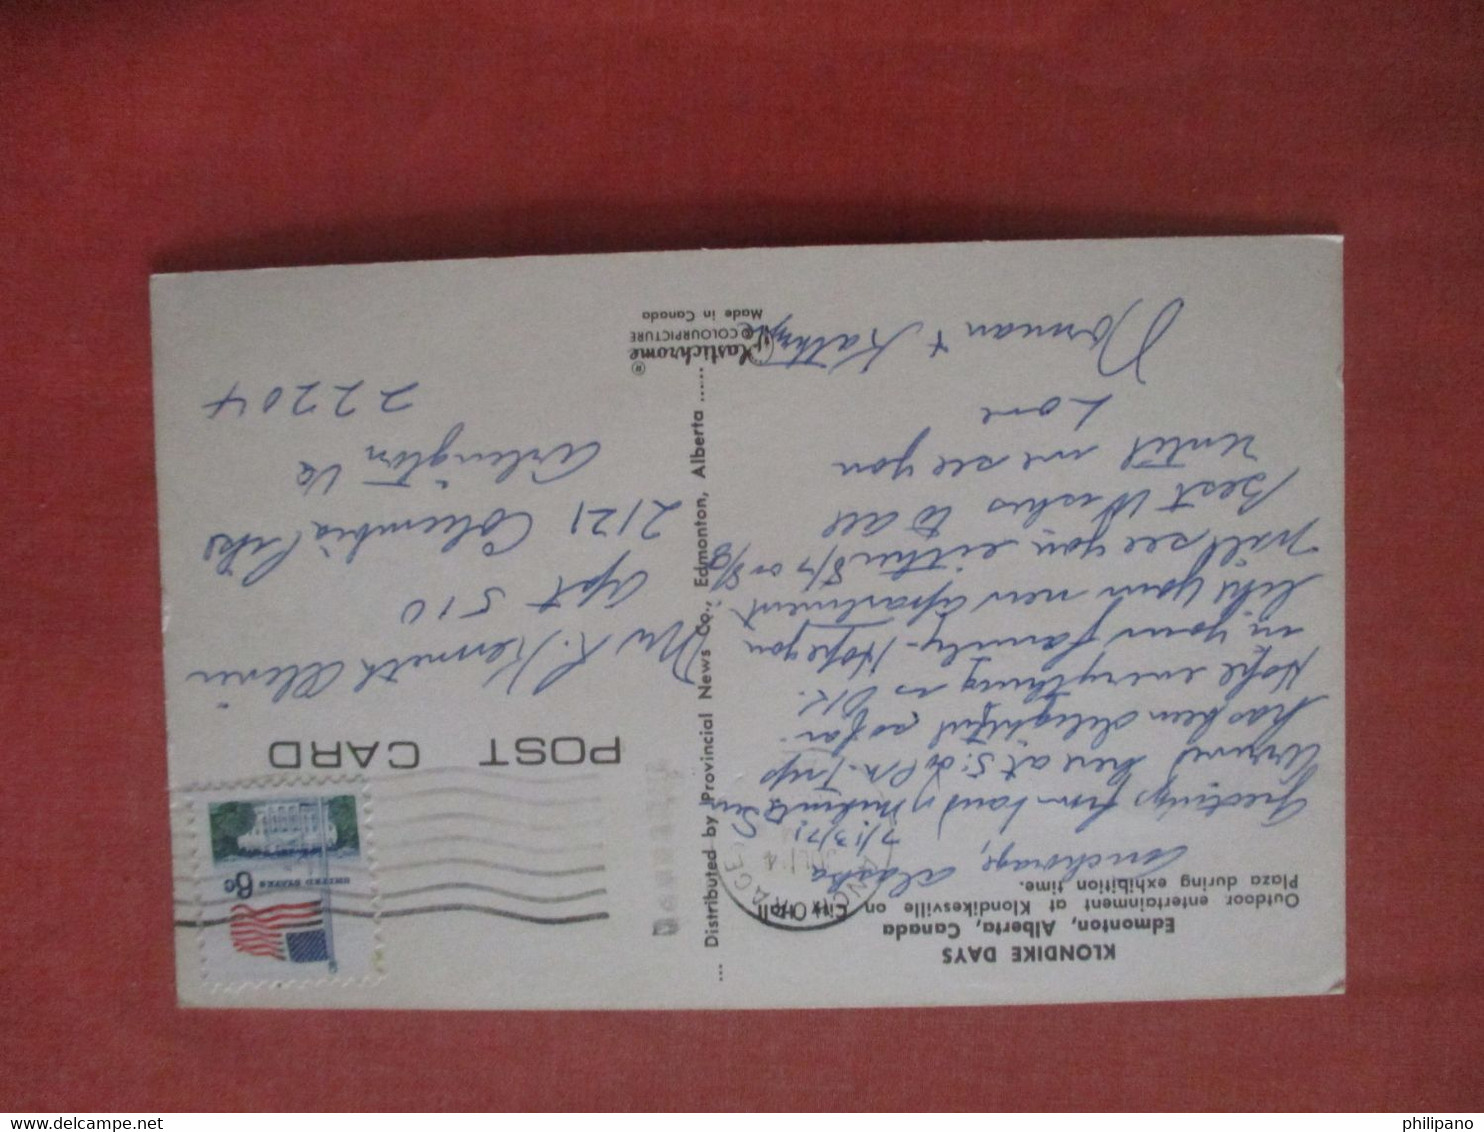 KLONDIKE DAYS
Edmonton, Alberta, Canada
Outdoor entertainment at Klondikesville on City Hall
Plaza during exhibition time.
Anchorage, Alaska
7/13/71
Greetings from Land of Midnite Sun
Arrived here at 5:20 P.M. Trip
has been delightful so far.
Hope everything is O.K.
in your family - Hope you
like your new apartment.
Will see you either 8/7 or 8/8
Best Wishes to all
Until we see you
Love
Norman + Kathryn
... Distributed by Provincial News Co., Edmonton, Alberta .....
Plastichrome ®
© COLOURPICTURE
Made in Canada
POST CARD
UNITED STATES
6c
ANCHORAGE
JUL 14
Mrs R. Kenneth
Apt 510
2121 Columbia Pike
Arlington Va
22204
philipano